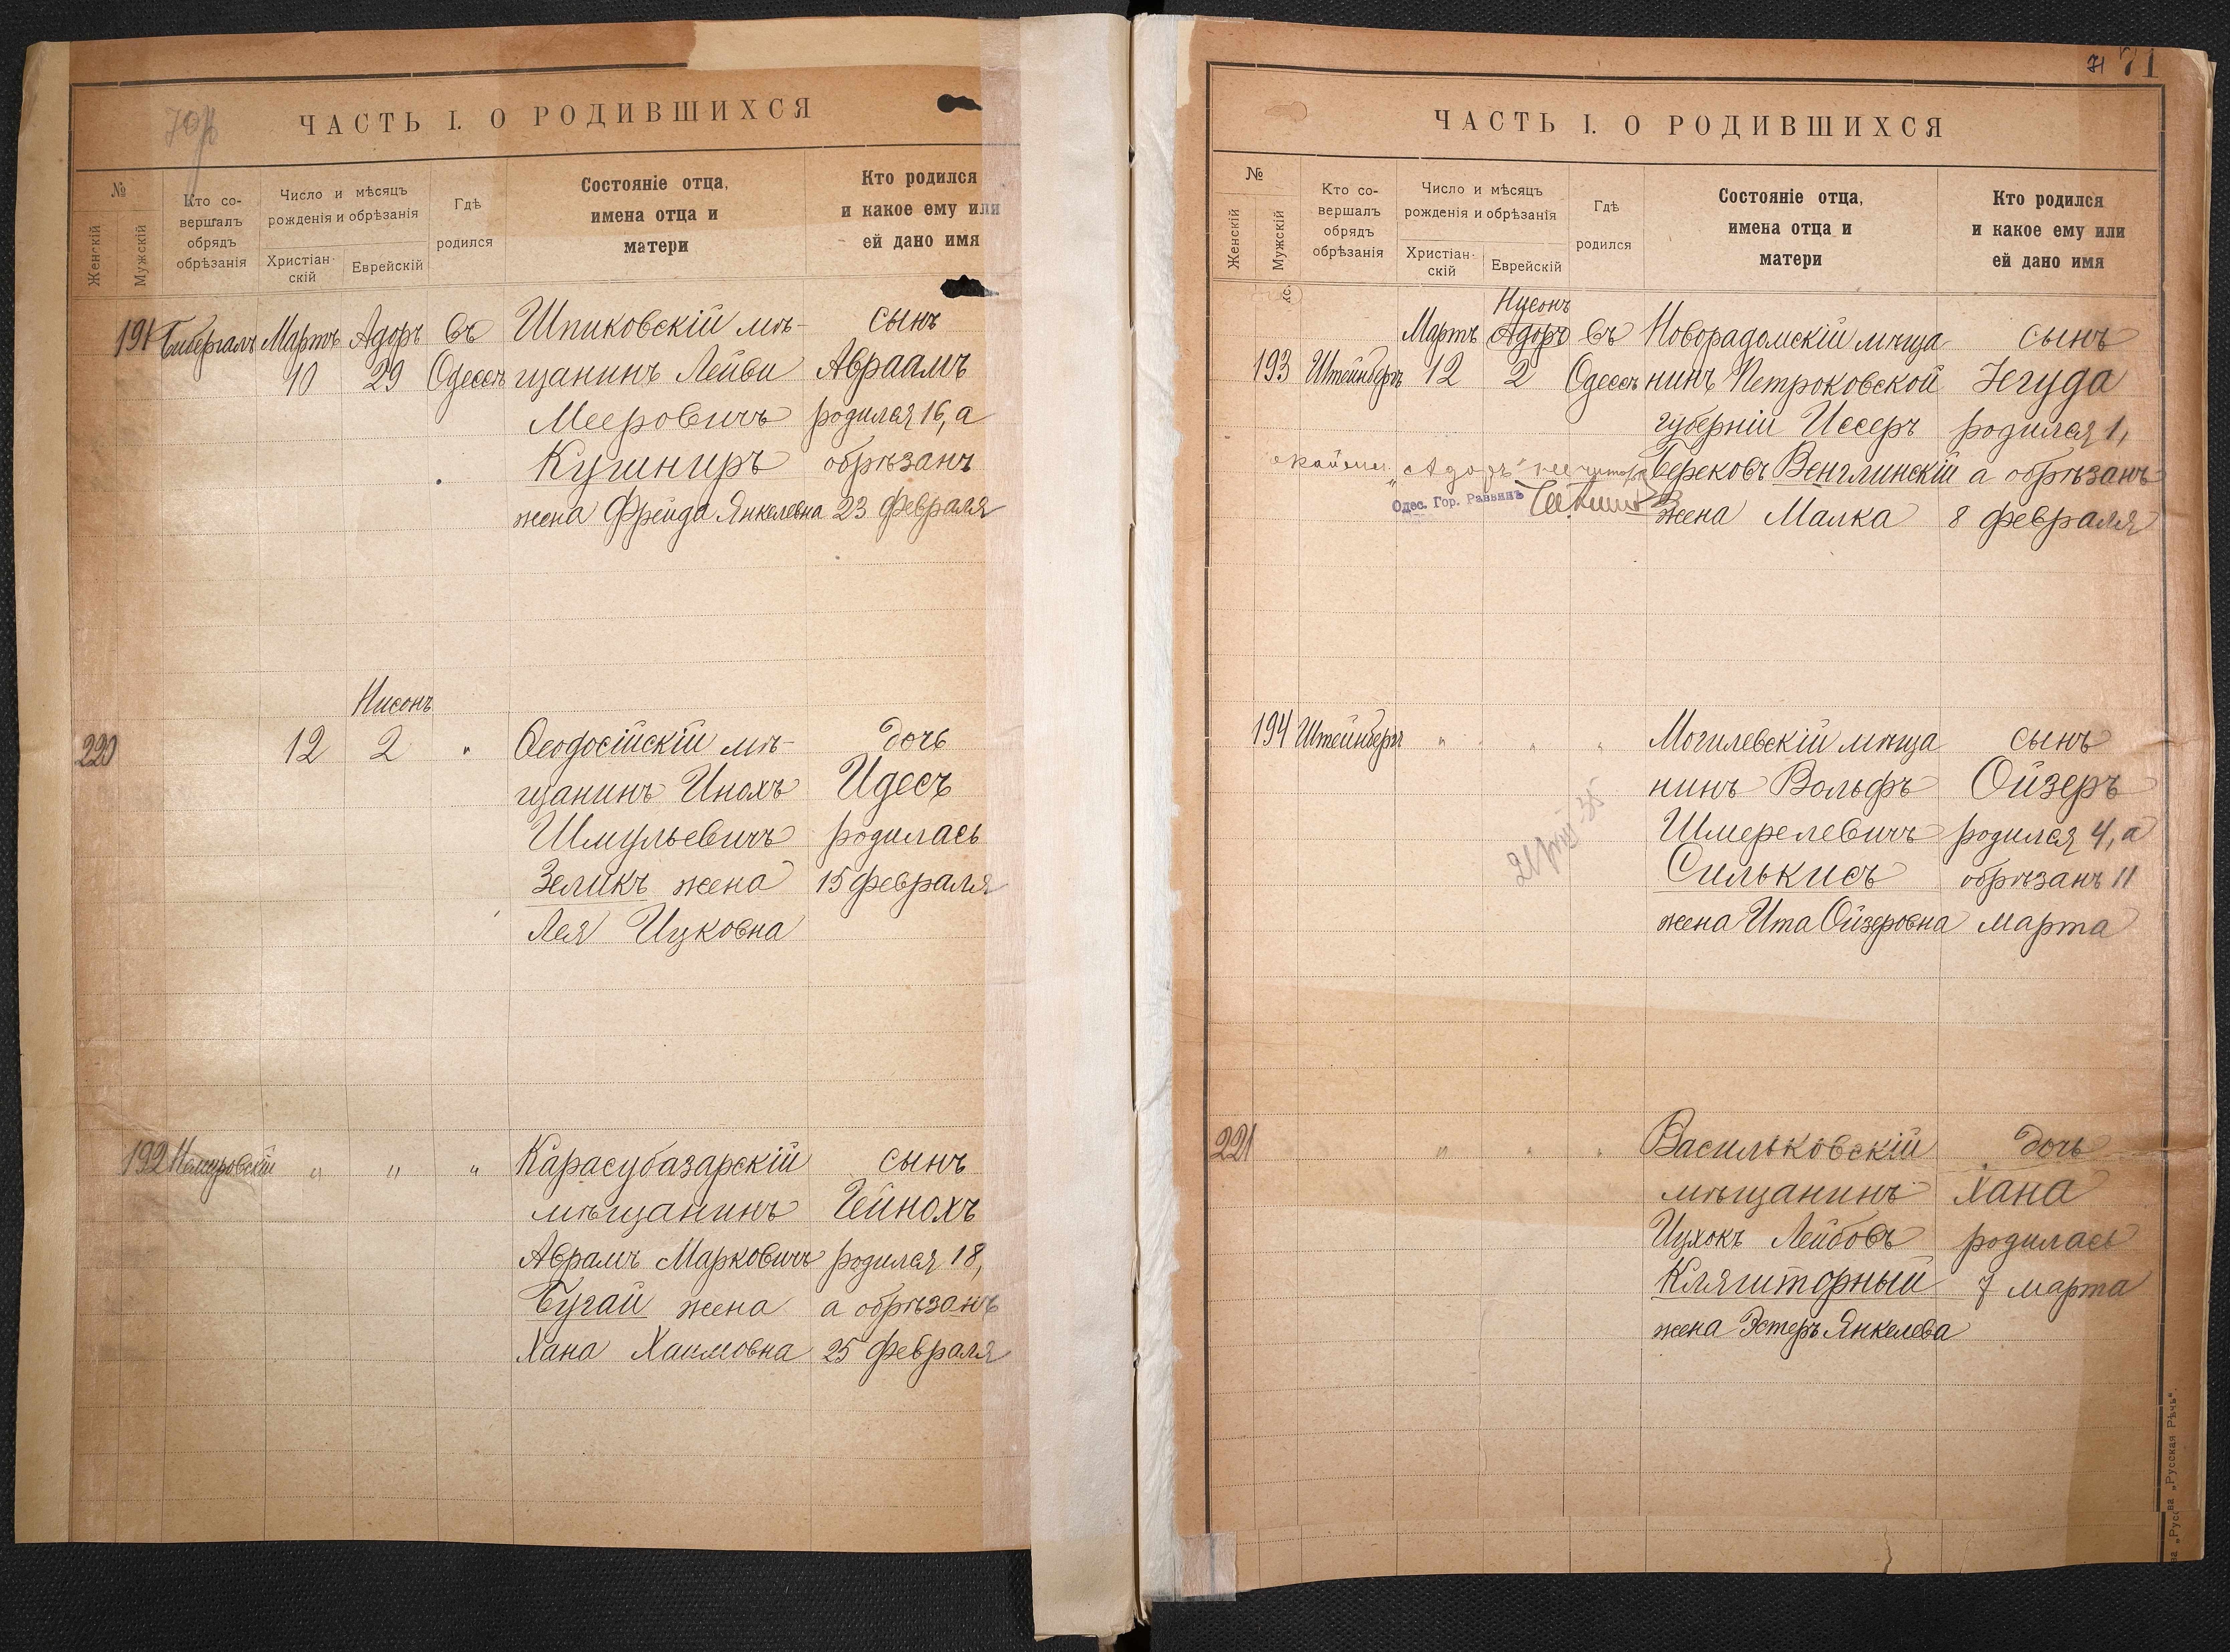 ЧАСТЬ I. О РОДИВШИХСЯ
№
Женскій
Мужскій
Кто со-
вершалъ
обрядъ
обрѣзанія
Число и мѣсяцъ
рожденія и обрѣзанія
Христіан-
скій
Еврейскій
Гдѣ
родился
Состояніе отца,
имена отца и
матери
Кто родился
и какое ему или
ей дано имя
191 Бибергалъ Мартъ Адоръ въ Шпиковскій мѣ- сынъ
10 29 Одессѣ щанинъ Лейви Авраамъ
Мееровичъ родился 16, а
Кушниръ обрѣзанъ
жена Фрейда Янкелевна 23 февраля
Нисонъ
220 12 2 " Ѳеодосійскій мѣ- дочь
щанинъ Инохъ Идесъ
Шмульевичъ родилась
Зеликъ жена 15 февраля
Лея Ицковна
192 Немировскій " " " Карасубазарскій сынъ
мѣщанинъ Гейнохъ
Аврамъ Марковичъ родился 18,
Бугай жена а обрѣзанъ
Хана Хаимовна 25 февраля
71 71
ЧАСТЬ I. О РОДИВШИХСЯ
№
Женскій
Мужскій
Кто со-
вершалъ
обрядъ
обрѣзанія
Число и мѣсяцъ
рожденія и обрѣзанія
Христіан-
скій
Еврейскій
Гдѣ
родился
Состояніе отца,
имена отца и
матери
Кто родился
и какое ему или
ей дано имя
Нисонъ
Мартъ Адоръ въ Новорадомскій мѣща сынъ
193 Штейнбергъ 12 2 Одессѣ нинъ Петроковской Іегуда
губерніи Иссеръ родился 1,
"Адоръ" не читать Берековъ Венглинскій а обрѣзанъ
Одес. Гор. Раввинъ жена Малка 8 февраля
194 Штейнбергъ " " " Могилевскій мѣща сынъ
нинъ Вольфъ Ойзеръ
Шмерелевичъ родился 4, а
Силькисъ обрѣзанъ 11
жена Ита Ойзеровна марта
221 " " " Васильковскій дочь
мѣщанинъ Хана
Ицхокъ Лейбовъ родилась
Кляшторный 7 марта
жена Эстеръ Янкелева
„Русская Рѣчь".